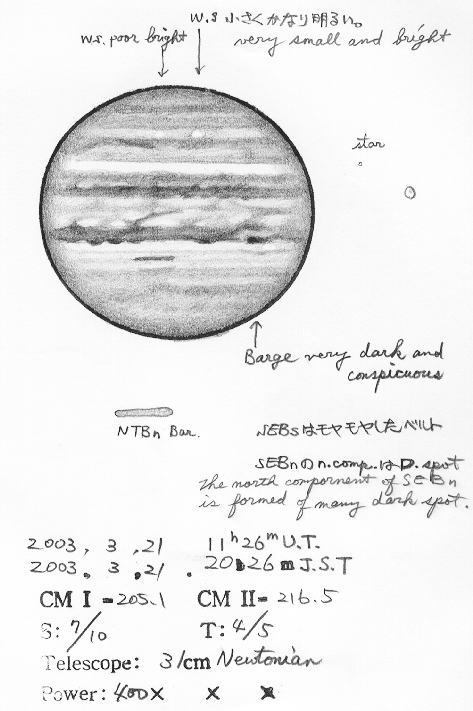 W.S 小さくかなり明るい。
W.S. poor bright
very small and bright
star
Barge very dark and
conspicuous
NTBn Bar.
SEBsはモヤモヤしたベルト
SEBnのn.comp.はD.spot
the north compornent of SEBn
is formed of many dark spot.
2003, 3, 21 11h26m U.T.
2003. 3, 21. 20 26m J.S.T
CM I = 205.1 CM II= 216.5
S: 7/10 T: 4/5
Telescope: 31cm Newtonian
Power: 400× × ×